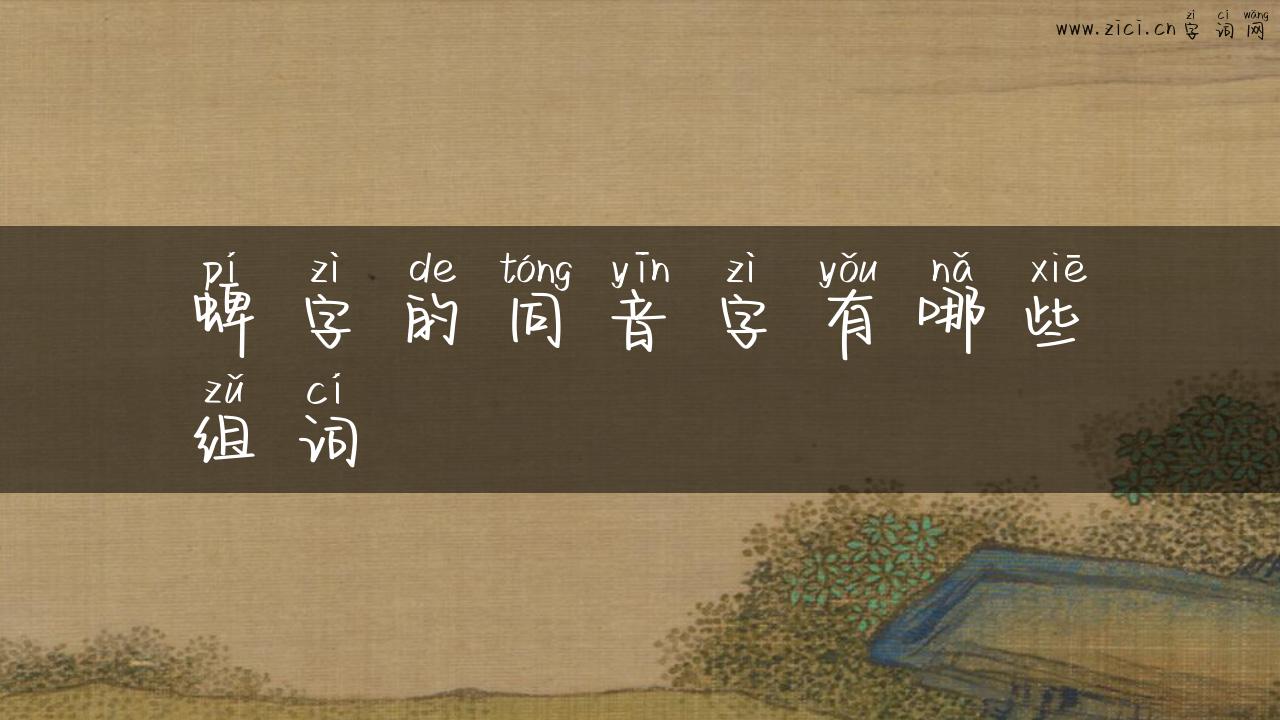 zì cí wǎng
www.zici.cn字词网
pí zì de tóng yīn zì yǒu nǎ xiē
蜱字的同音字有哪些
zǔ cí
组词